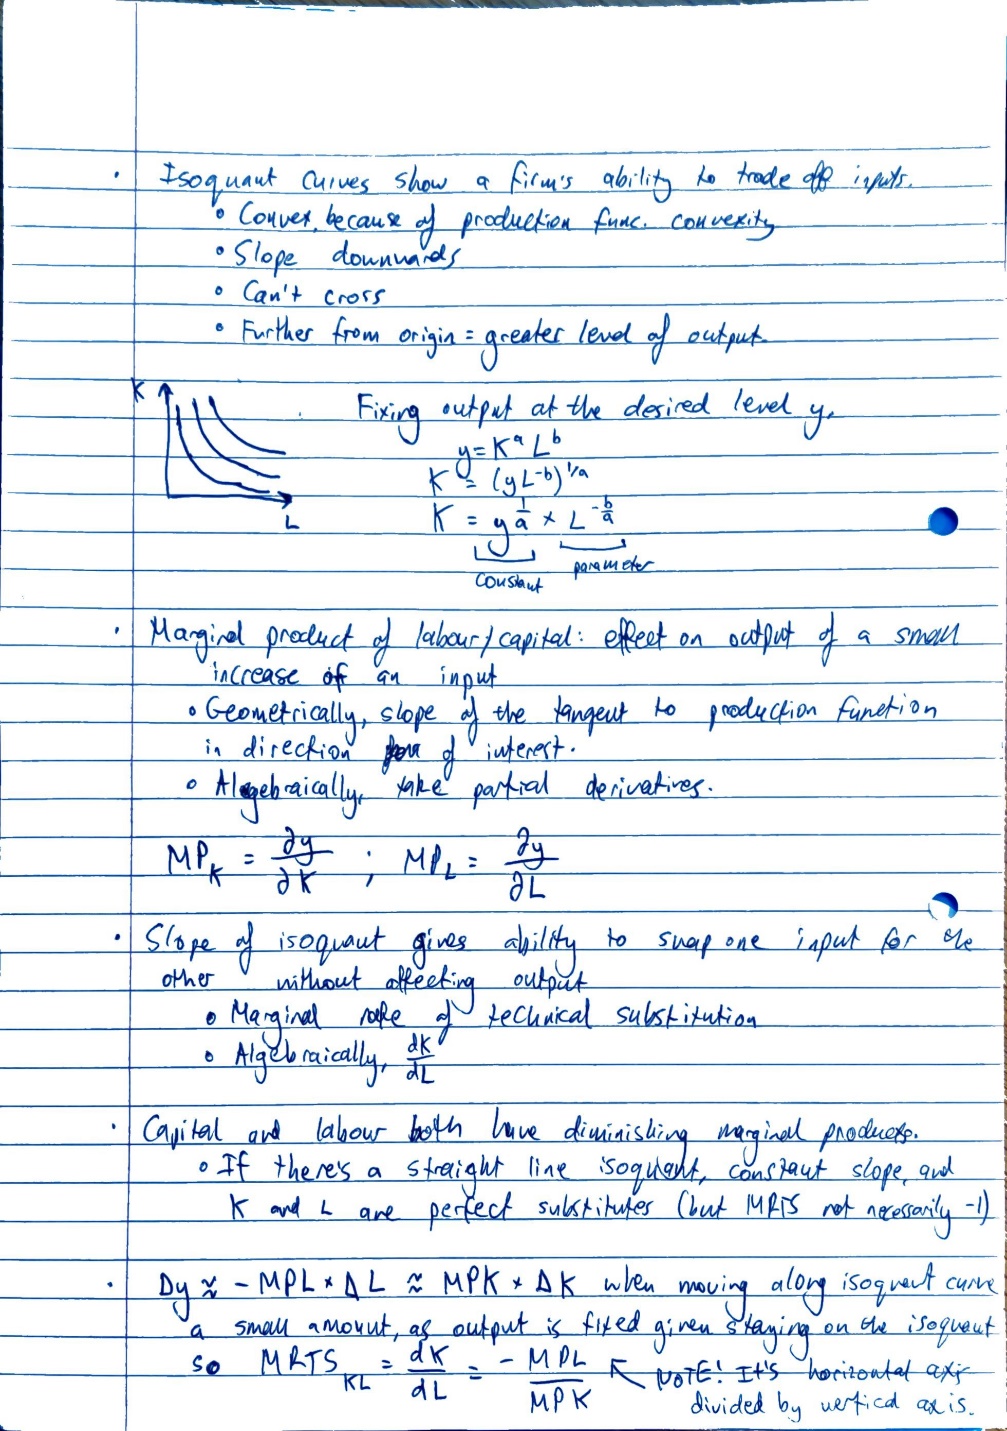 · Isoquant curves show a firm's ability to trade off inputs.
∘ Convex, because of production func. convexity
∘ Slope downwards
∘ Can't cross
∘ Further from origin = greater level of output.
K
Fixing output at the desired level y,
y = K^a L^b
K = (yL^-b)^1/a
K = y^(1/a) × L^(-b/a)
L
constant parameter
· Marginal product of labour/capital: effect on output of a small
increase of an input
∘ Geometrically, slope of the tangent to production function
in direction of interest.
∘ Algebraically, take partial derivatives.
MP_K = ∂y/∂K ; MP_L = ∂y/∂L
· Slope of isoquant gives ability to swap one input for the
other without affecting output
∘ Marginal rate of technical substitution
∘ Algebraically, dK/dL
· Capital and labour both have diminishing marginal products.
∘ If there's a straight line isoquant, constant slope, and
K and L are perfect substitutes (but MRTS not necessarily -1)
· Dy ≈ - MPL × ΔL ≈ MPK × ΔK when moving along isoquant curve
a small amount, as output is fixed given staying on the isoquant
so MRTS_KL = dK/dL = - MPL/MPK ↖ NOTE! It's horizontal axis
divided by vertical axis.